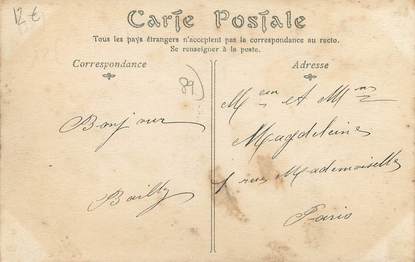 12 €
Carte Postale
Tous les pays étrangers n'acceptent pas la correspondance au recto.
Se renseigner à la poste.
Correspondance
Adresse
89)
Bonjour
Bailly
et
Magdeleine
rue Mademoiselle
Paris